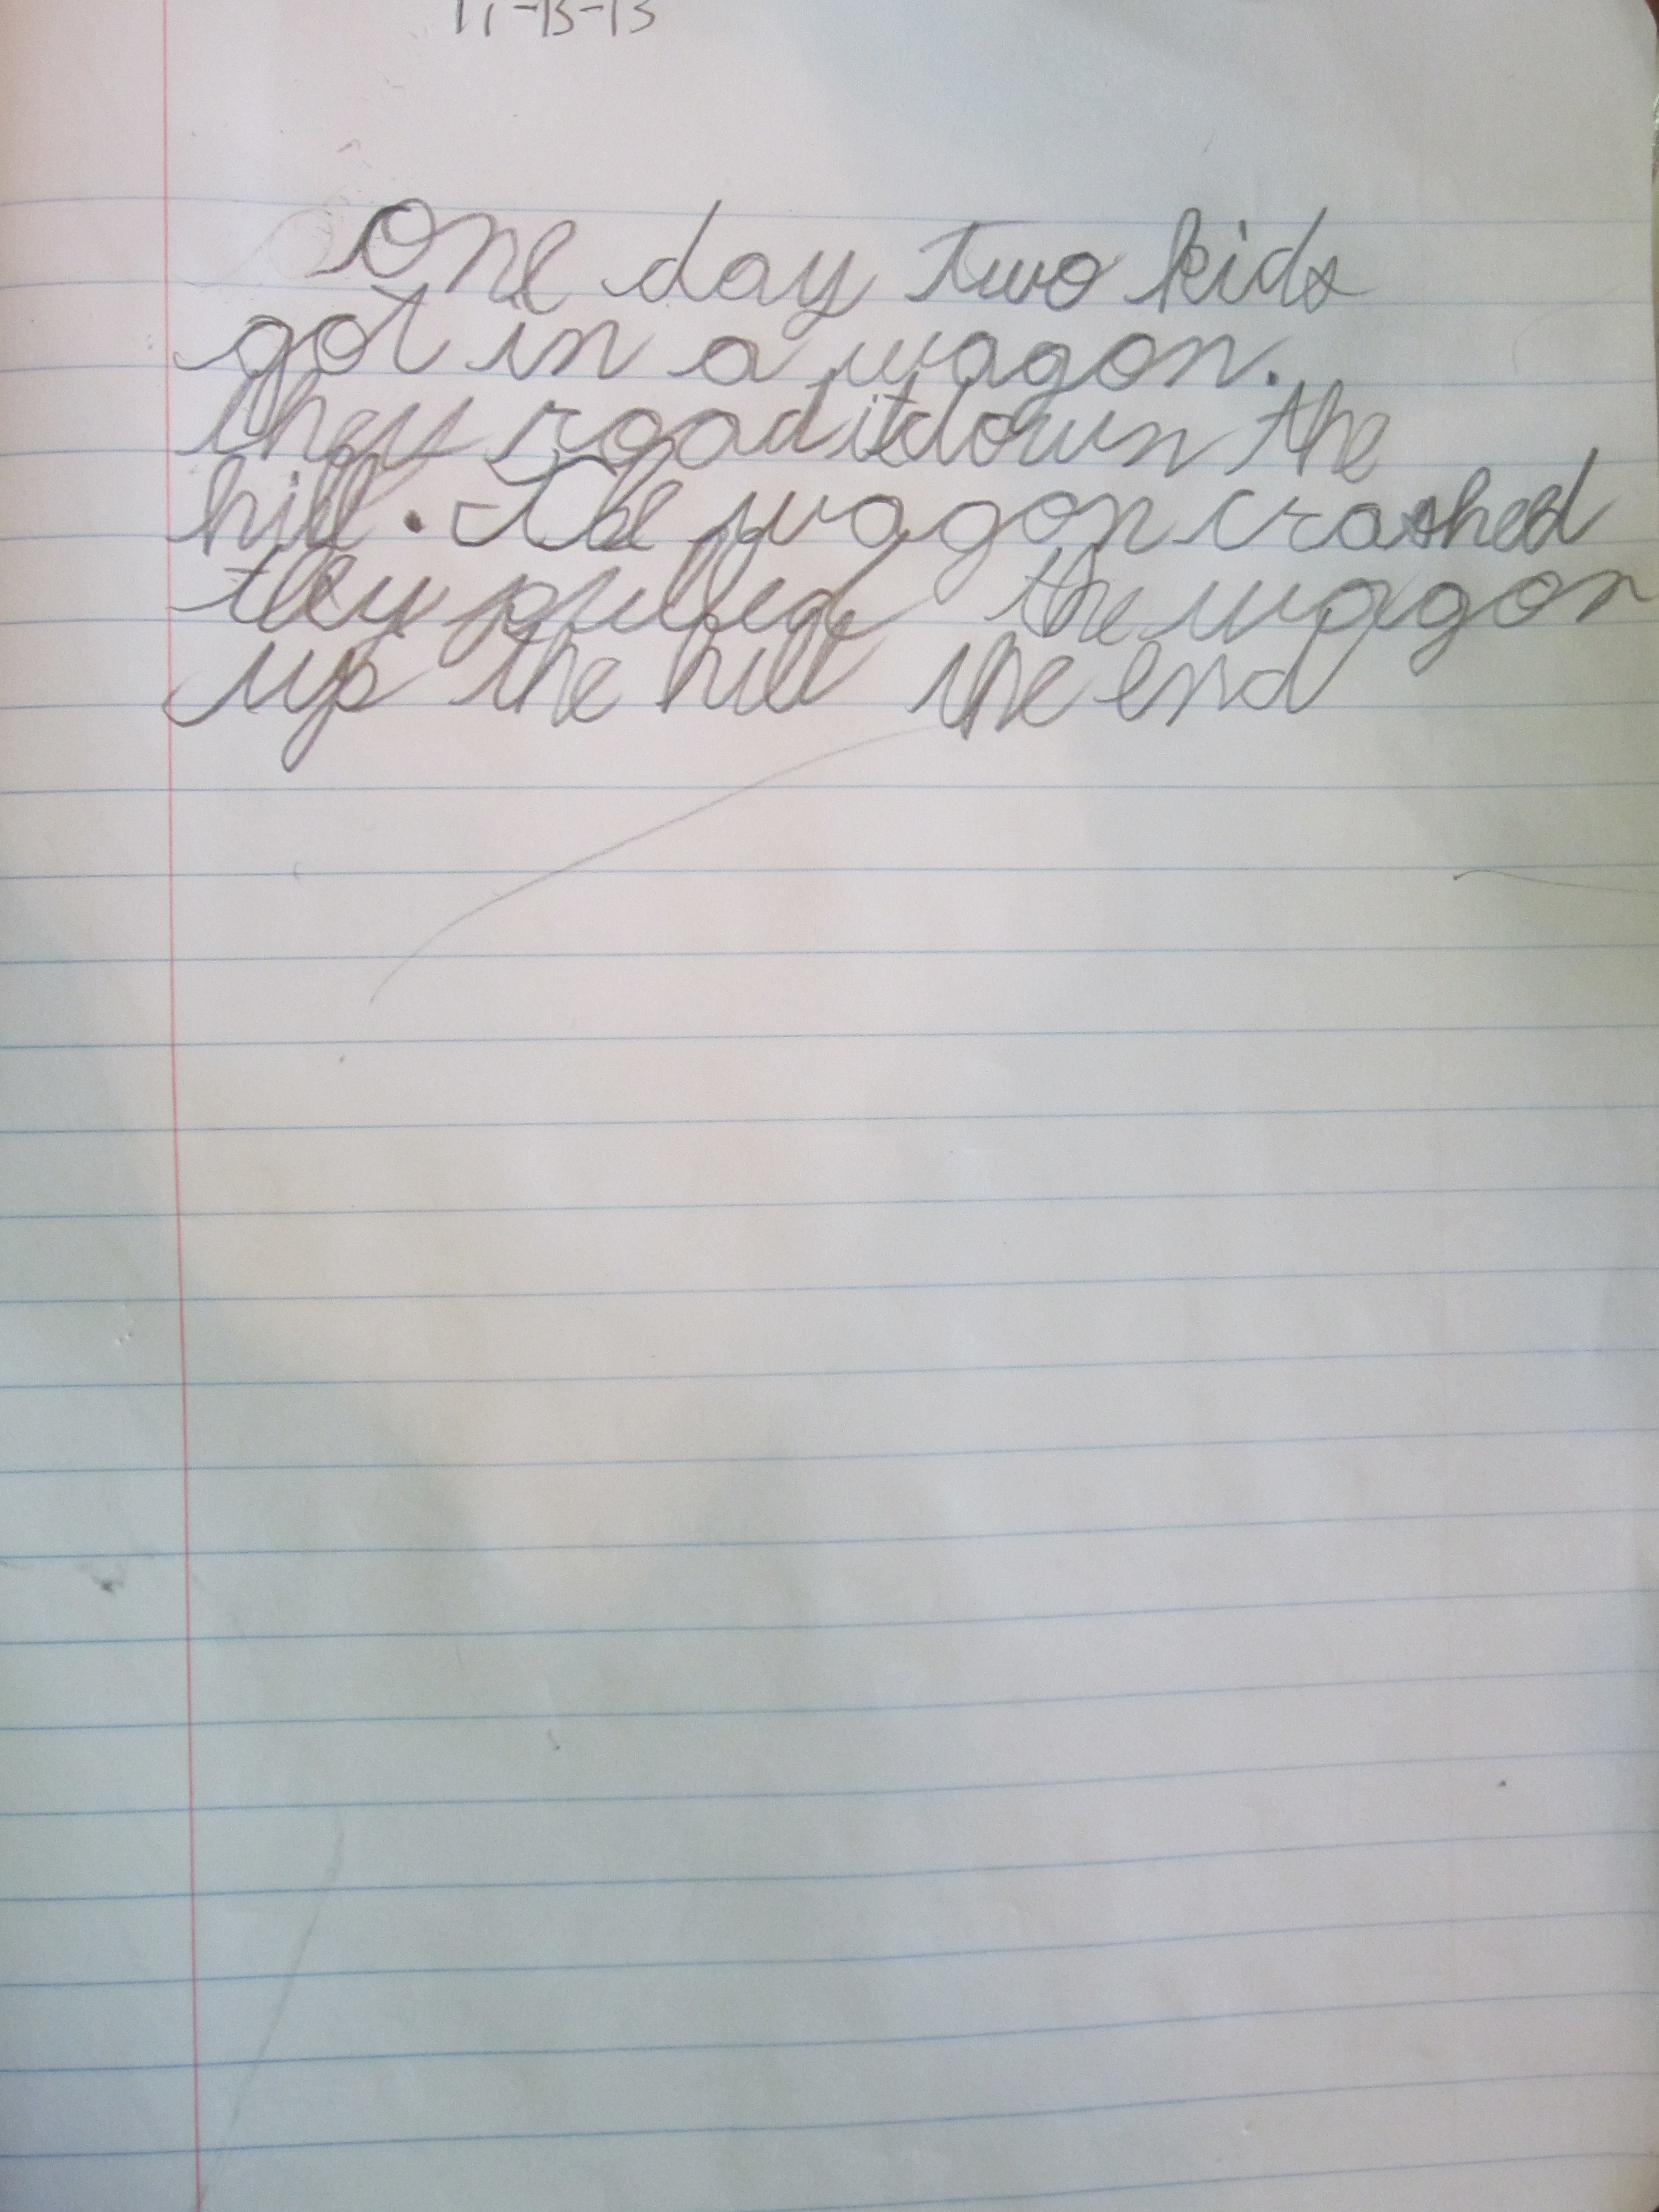 11-13-13
One day two kids
got in a wagon.
they road it down the
hill. The wagon crashed
they pulled the wagon
up the hill the end